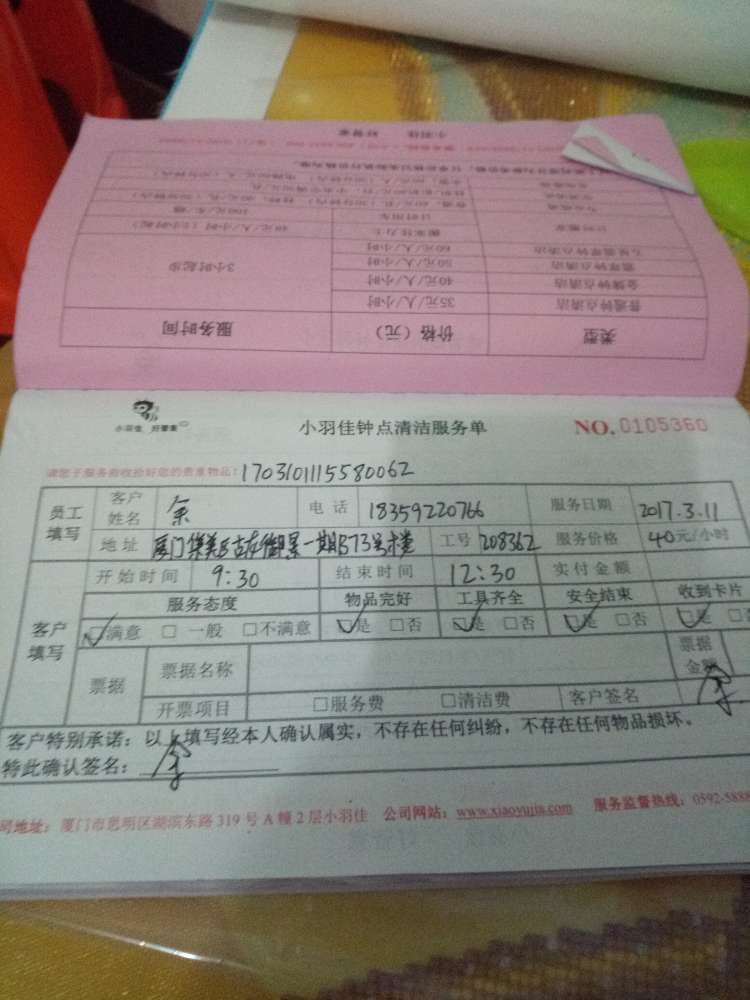 小羽佳 好管家
3小时起步
60元/人/小时
50元/人/小时
金牌钟点清洁 40元/人/小时
普通钟点清洁 35元/人/小时
类型 价格(元) 服务时间
小羽佳 好管家
小羽佳钟点清洁服务单 NO.0105360
请您于服务前收拾好您的贵重物品: 17031011155580062
员工填写 客户姓名 余 电话 18359220766 服务日期 2017.3.11
地址 工号 208362 服务价格 40元/小时
客户填写 开始时间 9:30 结束时间 12:30 实付金额
服务态度 物品完好 工具齐全 安全结束 收到卡片
□满意 □一般 □不满意 □是 □否 □是 □否 □是 □否 □是 □否
票据 票据名称 票据金额
开票项目 □服务费 □清洁费 客户签名 余
客户特别承诺:以上填写经本人确认属实,不存在任何纠纷,不存在任何物品损坏。
特此确认签名: 余
司地址:厦门市思明区湖滨东路319号A幢2层小羽佳 公司网站:www.xiaoyujia.com 服务监督热线:0592-5888